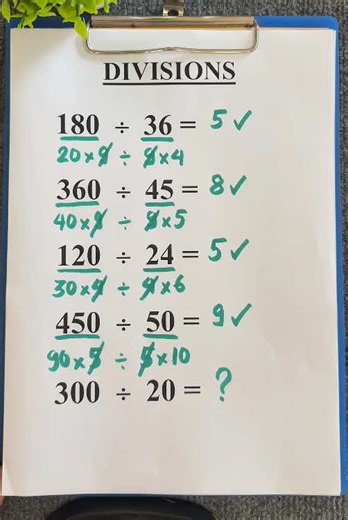 DIVISIONS
180 ÷ 36 = 5 ✓
20 × 9 ÷ 9 × 4
360 ÷ 45 = 8 ✓
40 × 9 ÷ 9 × 5
120 ÷ 24 = 5 ✓
30 × 4 ÷ 4 × 6
450 ÷ 50 = 9 ✓
90 × 5 ÷ 5 × 10
300 ÷ 20 = ?